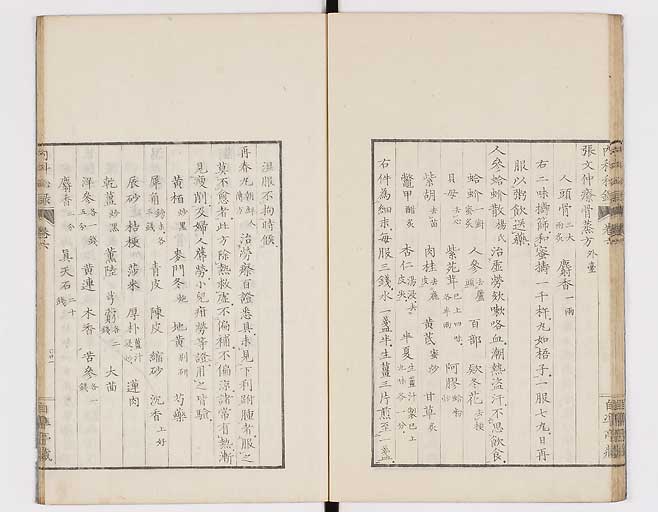 張文仲療骨蒸方外臺
人頭骨 麝香一兩
右二味擣篩和蜜擣一千杵丸如梧子一服七丸日再
服以粥飲送藥
人參蛤蚧散楊氏治虛勞欬嗽咯血潮熱盜汗不思飲食
蛤蚧一對蜜炙 人參去蘆頭 百部 欵冬花去梗
貝母去心 紫菀茸已上四味各半兩 阿膠蛤粉
紫胡去苗 肉桂去麁皮 黃芪蜜炒 甘草炙
鱉甲醋炙 杏仁湯浸去皮尖 半夏生薑
右件為細末每服三錢水一盞半生薑三片煎至一盞
溫服不拘時候
再春丸 治勞瘵百證悉具未見下利跗腫者服之
莫不愈者此方除熱救虛不偏補不偏涼諸常有熱漸
見瘦削及婦人蓐勞小兒疳勞等證用之皆驗
黃栢炒黑 麥門冬 地黃別研 芍藥
犀角 青皮 陳皮 縮砂 沉香上好
辰砂 桔梗 莎末 厚朴薑汁 蓮肉
乾薑炒黑 薰陸 芎藭各二錢 大苗
洋參各一錢五分 黃連 木香 苦參各一錢
麝香二分 真天石二十錢